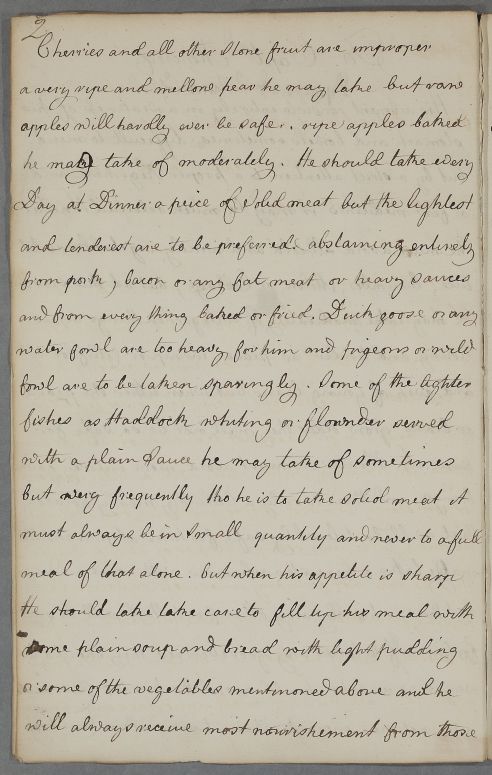 2
Cherries and all other Stone fruit are improper
a very ripe and mellow pear he may take but raw
apples will hardly ever be safe. ripe apples baked
he may take of moderately. He should take every
Day at Dinner a peice of Solid meat but the lightest
and tenderest are to be preferred. abstaining entirely
from pork, bacon or any fat meat or heavy sauces
and from every thing baked or fried. Duck goose or any
water fowl are too heavy for him and pigeons or wild
fowl are to be taken sparingly. Some of the lighter
fishes as Haddock whiting or flownder served
with a plain Sauce he may take of sometimes
but very frequently tho he is to take solid meat it
must always be in Small quantity and never to a full
meal of that alone. but when his appetite is sharp
He should take take care to fill up his meal with
some plain soup and bread with light pudding
or some of the vegetables mentinoned above and he
will always receive most nourishement from those